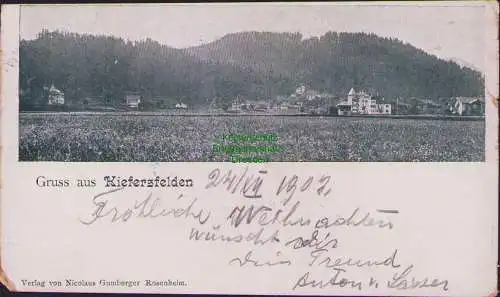 Gruss aus Kiefersfelden
24/XII 1902.
Fröhliche Weihnachten
wünscht dir
dein Freund
Anton v
Verlag von Nicolaus Gumberger Rosenheim.